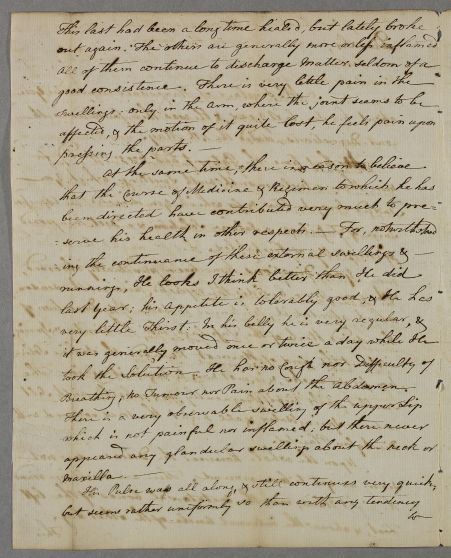 This last had been a long time healed, but lately broke
out again. The others are generally more or less inflamed
all of them continue to discharge matter seldom of a
good consistence. There is very little pain in the
swellings: only in the arm, where the joint seems to be
affected, & the motion of it quite lost, he feels pain upon
pressing the parts. —
At the same time, there is reason to believe
that the Course of Medicine & Regimen to which he has
been directed have contributed very much to pre=
serve his health in other respects. — For, notwithstand
ing the continuance of these external swellings & —
runnings, He looks I think better than He did
last year; his appetite is tolerably good, & He has
very little Thirst: In his belly he is very regular, &
it was generally moved once or twice a day while He
took the Solution. He has no Cough nor Difficulty of
Breathing, no Tumour nor Pain about the Abdomen.
There is a very observable swelling of the upper Lip
which is not painful nor inflamed; but there never
appeared any glandular swellings about the neck or
maxilla —
His Pulse was all along, & still continues very quick;
but seems rather uniformly so than with any tendency
to